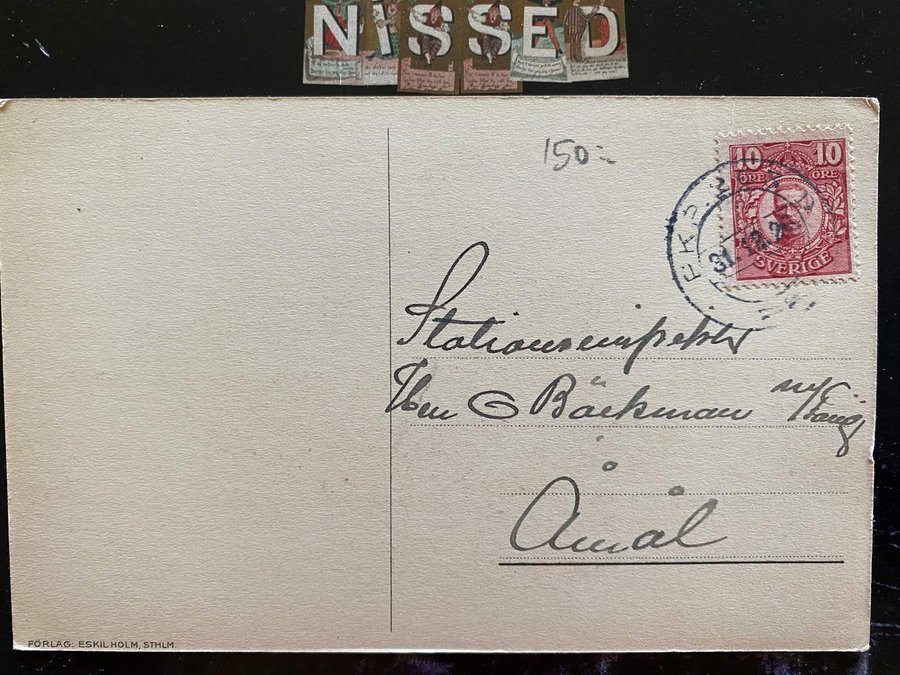 NISSED
150:-
10 10
ÖRE ÖRE
SVERIGE
PKP. 2
31.12.2
Stationsinspektör
Herr G Bäckman
Åmål
FÖRLAG: ESKIL HOLM, STHLM.